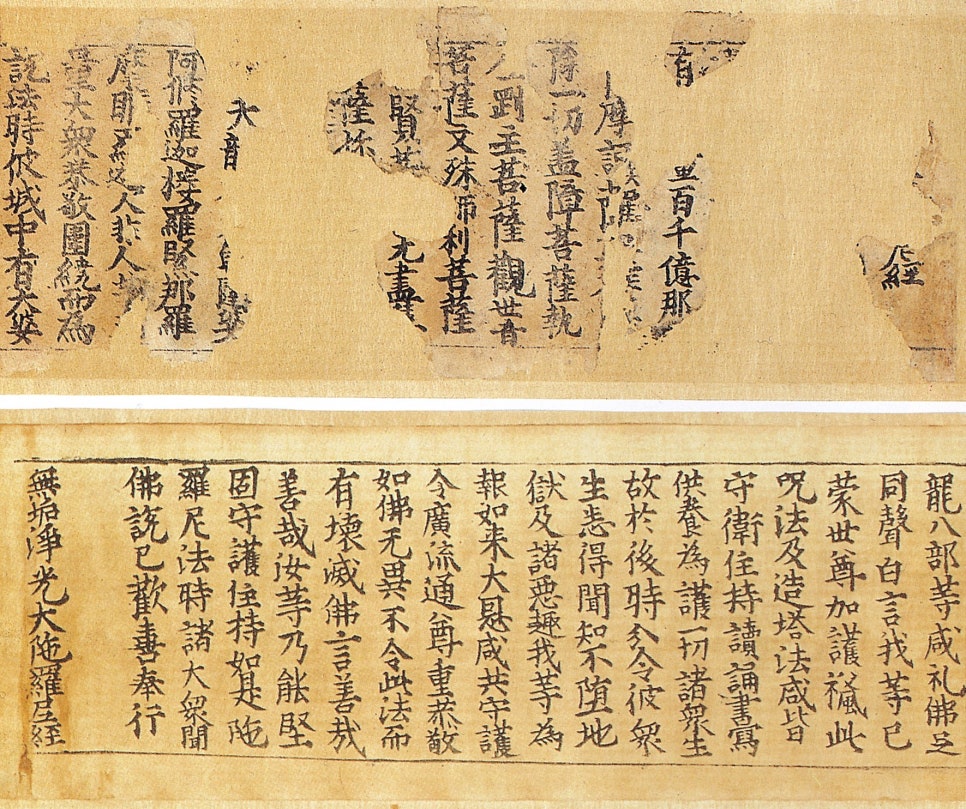 經
百千億那
摩訶
除一切盖障菩薩執
剛主菩薩觀世音
菩薩文殊師利菩薩
賢 无盡
薩弥
婆
阿脩羅迦樓羅緊那羅
摩 人非人等
量大衆恭敬圍繞而為
說法時彼城中有大婆
龍八部等咸礼佛足
同聲白言我等已
蒙世尊加護授此
呪法及造塔法咸皆
守衛住持讀誦書寫
供養為護一切諸衆生
故於後時分令彼衆
生悉得聞知不墮地
獄及諸惡趣我等為
報如来大恩咸共守護
令廣流通尊重恭敬
如佛无異不令此法而
有壞滅佛言善哉
善哉汝等乃能堅
固守護住持如是陁
羅尼法時諸大衆聞
佛說已歡喜奉行
無垢淨光大陁羅尼經